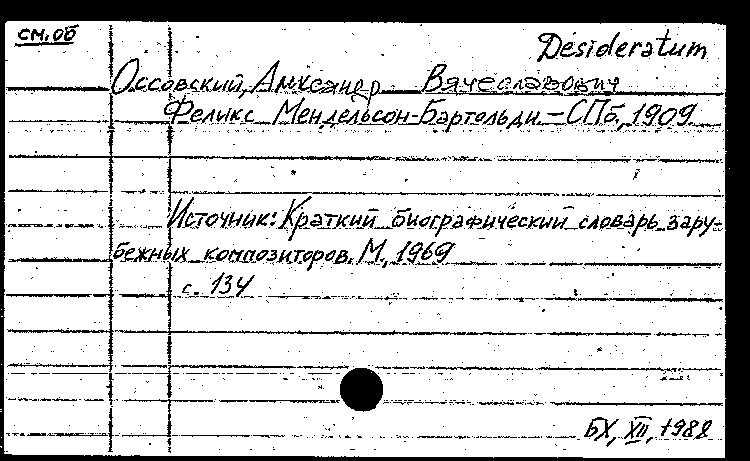 см. об
Desideratum
Оссовский, Александр Вячеславович
Феликс Мендельсон-Бартольди. – СПб, 1909
Источник: Краткий биографический словарь зару-
бежных композиторов. М., 1969
с. 134
БХ, XII, 1988